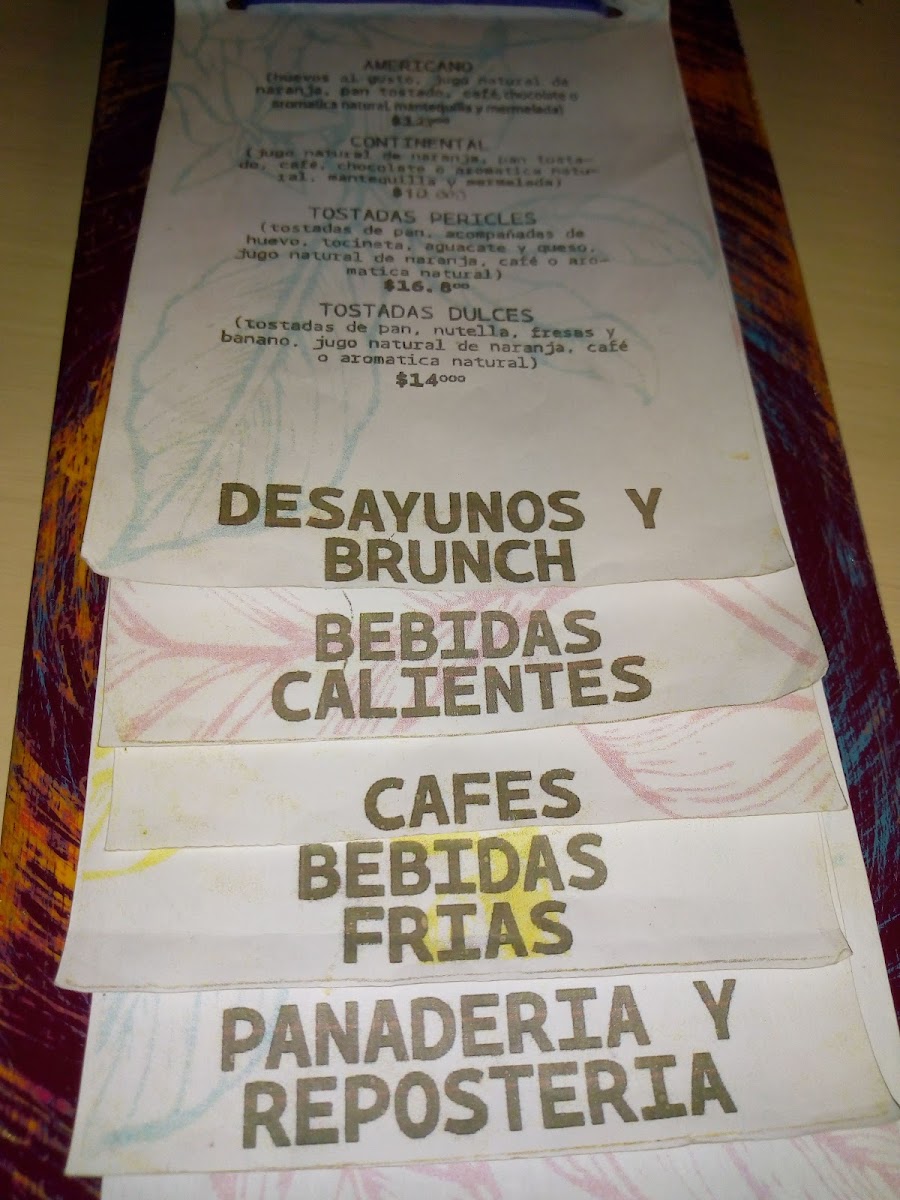 AMERICANO
(huevos al gusto, jugo natural de
naranja, pan tostado, café, chocolate o
aromatica natural, mantequilla y mermelada)
CONTINENTAL
(jugo natural de naranja, pan tosta-
do, café, chocolate o aromatica natu-
ral, mantequilla y mermelada)
$10.000
TOSTADAS PERICLES
(tostadas de pan, acompañadas de
huevo, tocineta, aguacate y queso,
jugo natural de naranja, café o aro-
matica natural)
$16.800
TOSTADAS DULCES
(tostadas de pan, nutella, fresas y
banano. jugo natural de naranja, café
o aromatica natural)
$14000
DESAYUNOS Y
BRUNCH
BEBIDAS
CALIENTES
CAFES
BEBIDAS
FRIAS
PANADERIA Y
REPOSTERIA